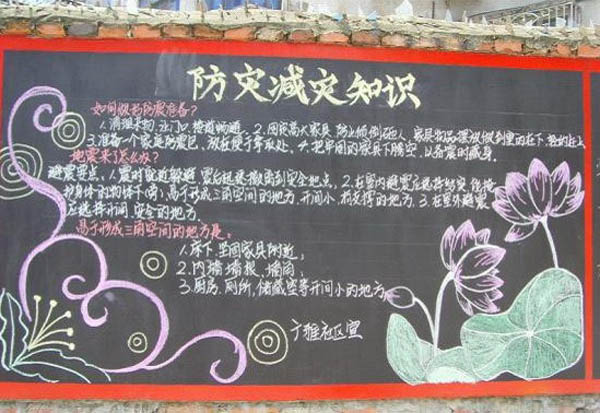 防灾减灾知识
如何做好防震准备?
1.清理杂物,让门口、楼道畅通。2.固定高大家具,防止倾倒砸人,家具物品摆放做到重的在下,轻的在上
3.准备一个家庭防震包,放在便于拿取处。4.把牢固的家具下腾空,以备震时藏身。
地震来了怎么办?
避震要点:1.震时就近躲避,震后迅速撤离到安全地点。2.在室内避震应选择结实、能掩
护身体的物体下(旁)、易于形成三角空间的地方,开间小、有支撑的地方。3.在室外避震
应选择开阔、安全的地方。
易于形成三角空间的地方是。
1.床下、坚固家具附近;
2.内墙墙根、墙角;
3.厨房、厕所、储藏室等开间小的地方。
广雅社区宣